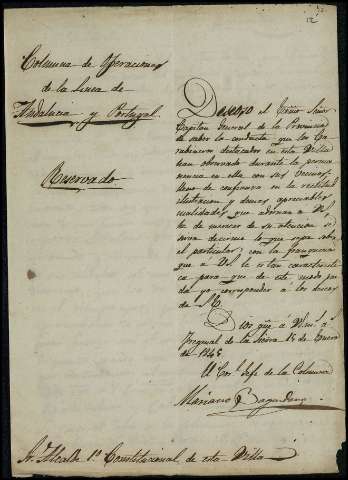 12
Columna de Operaciones
de la linea de
Andalucia y Portugal.
Reservado.
Deseoso el Exmo Señor
Capitan General de la Provincia
de saber la conducta que los Ca-
rabineros destacados en esta Villa
han observado durante la perma-
nencia en ella con sus Vecinos,
lleno de confianza en la rectitud
ilustracion y demas apreciables
cualidades que adornan a V.
he de merecer de su atencion se
sirva decirme lo que sepa sobre
el particular, con la franqueza
que a Vd. le es tan caracteris-
tica para que de este modo pue-
da yo corresponder á los deseos
de S.E.
Dios gue á V. m.s a.s
Fregenal de la Sierra 15 de Enero
de 1845
El Cor.l Jefe de la Columna
Mariano
Sr. Alcalde 1º Constitucional de esta Villa